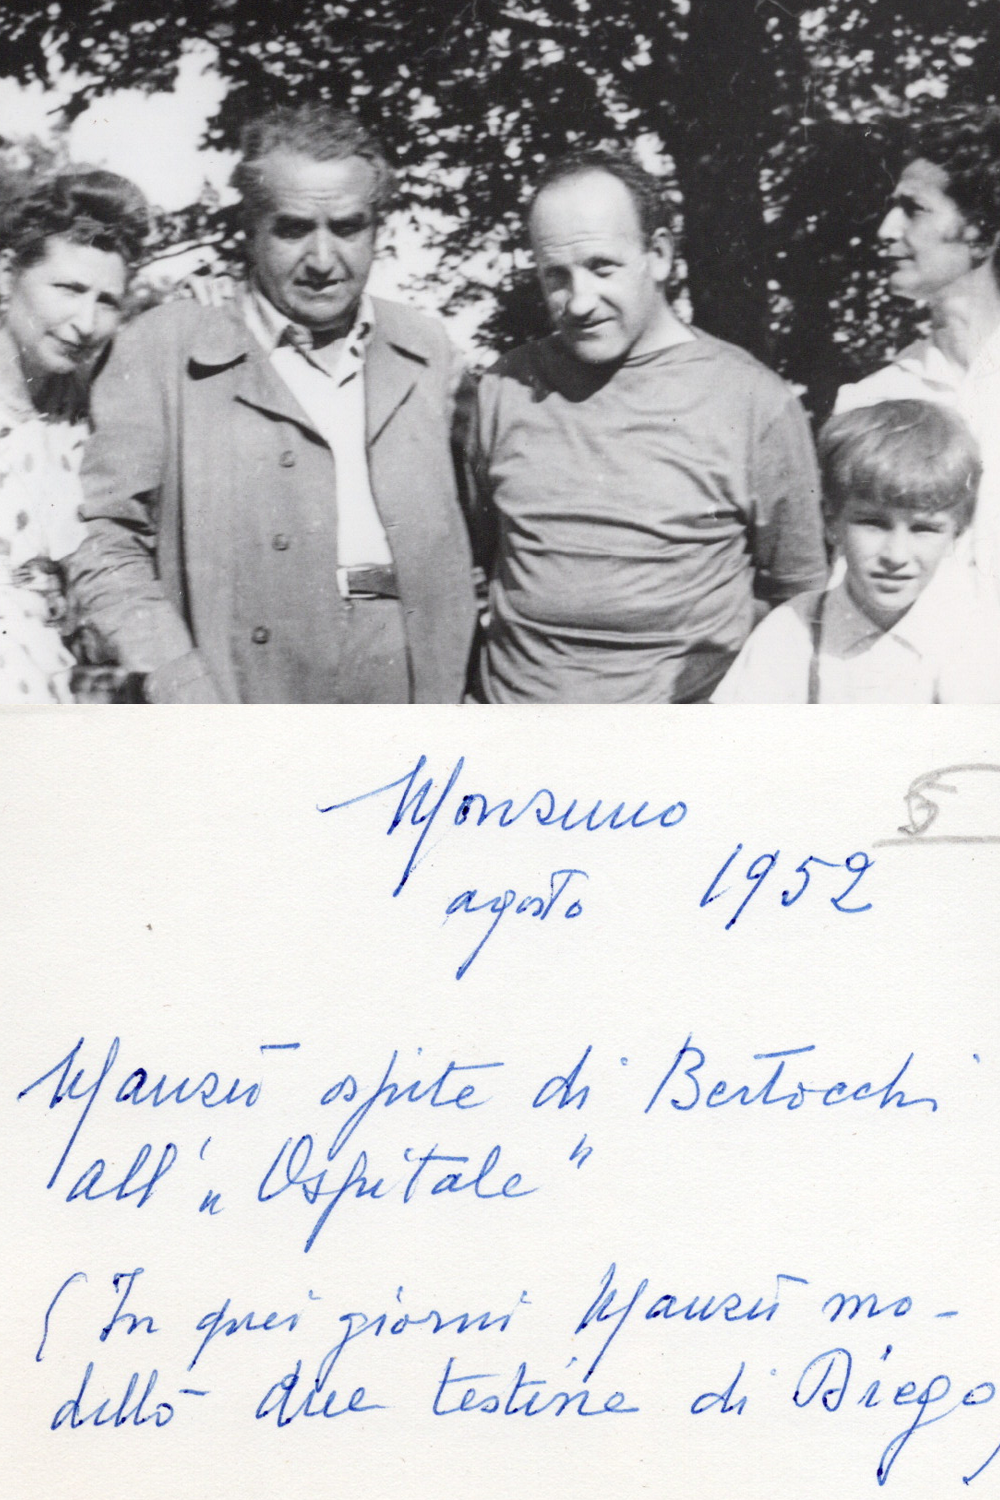 Monzuno
5
agosto 1952
Manzū ospite di Bertocchi
all'„Ospitale"
(In quei giorni Manzū mo-
dellò due testine di Diego)